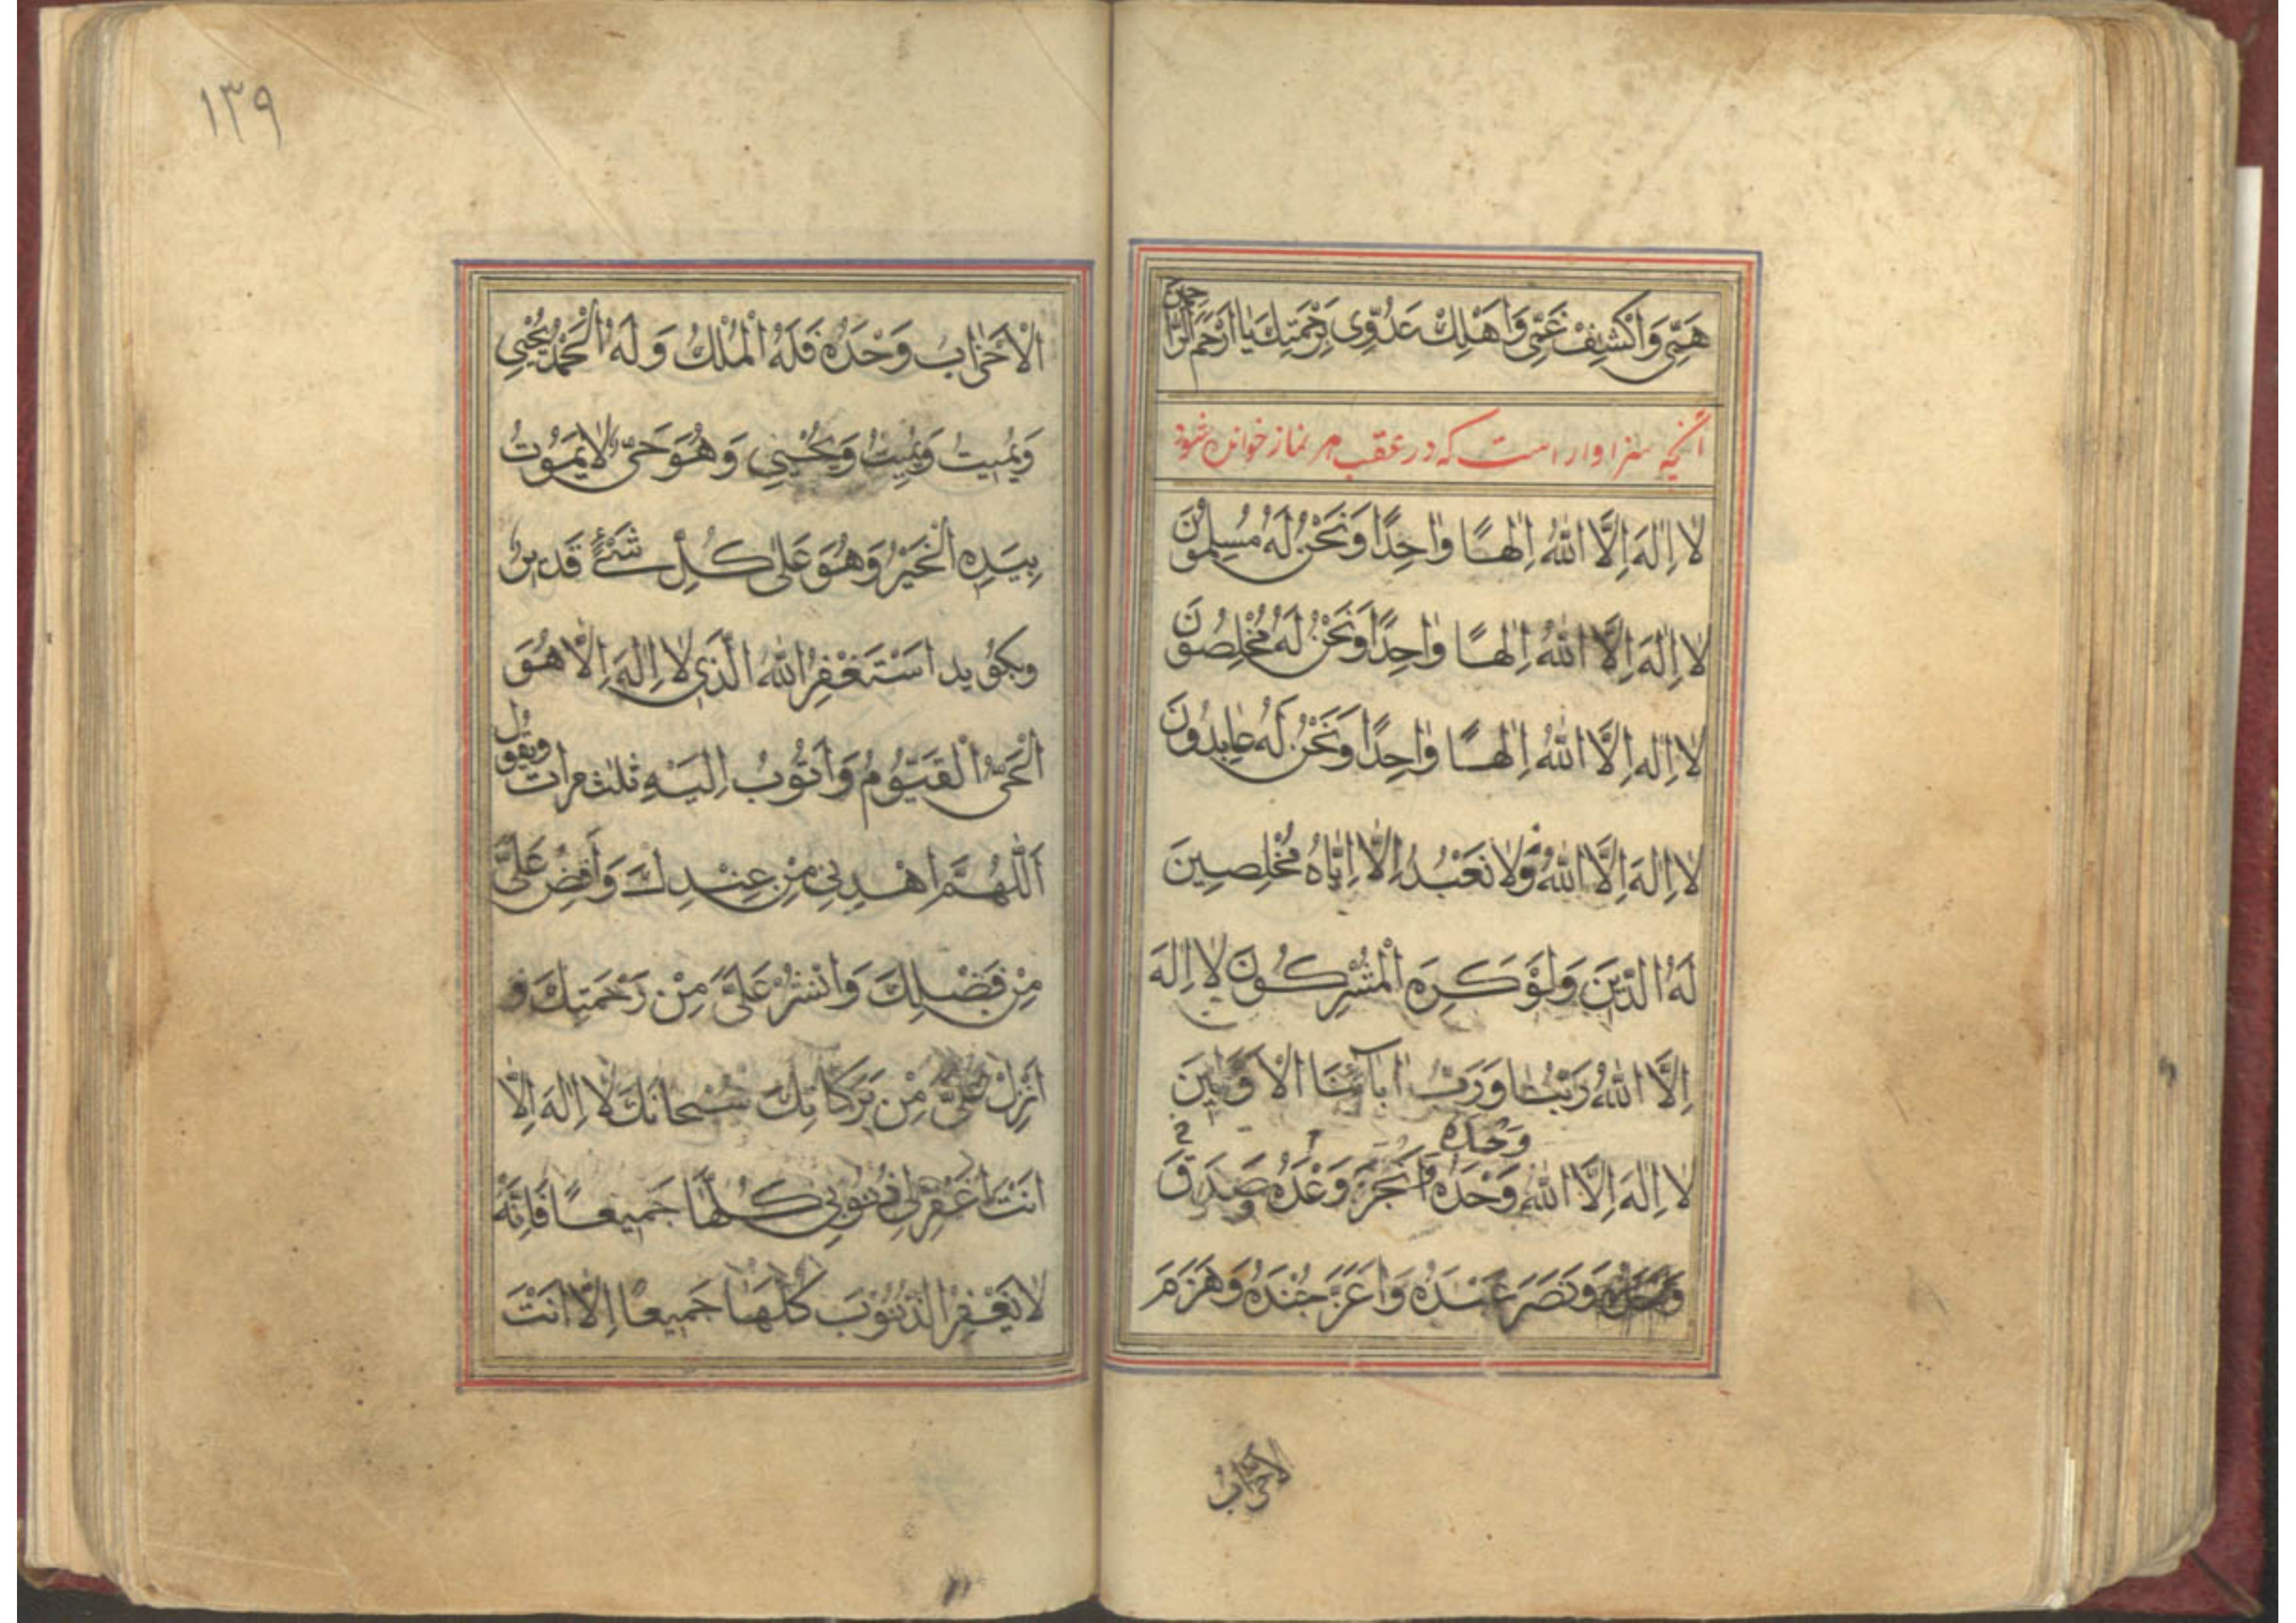 هَمّى وَاكْشِفْ غَمّى وَاَهْلِكْ عَدُوّى بِرَحْمَتِكَ يا اَرْحَمَ الرّاحِمينَ
آنچه سزاوار است که در عقب هر نماز خوانده شود
لا اِلٰهَ اِلَّا اللهُ اِلٰهًا وٰاحِدًا وَنَحْنُ لَهُ مُسْلِمُونَ
لا اِلٰهَ اِلَّا اللهُ اِلٰهًا وٰاحِدًا وَنَحْنُ لَهُ مُخْلِصُونَ
لا اِلٰهَ اِلَّا اللهُ اِلٰهًا وٰاحِدًا وَنَحْنُ لَهُ عٰابِدُونَ
لا اِلٰهَ اِلَّا اللهُ وَلا نَعْبُدُ اِلّا اِيّٰاهُ مُخْلِصِينَ
لَهُ الدّينَ وَلَوْ كَرِهَ الْمُشْرِكُونَ لا اِلٰهَ
اِلَّا اللهُ رَبُّنٰا وَرَبُّ اٰبآئِنَا الْاَوَّلينَ
وَحْدَهُ
لا اِلٰهَ اِلَّا اللهُ وَحْدَهُ اَنْجَزَ وَعْدَهُ وَصَدَقَ
وَنَصَرَ عَبْدَهُ وَاَعَزَّ جُنْدَهُ وَهَزَمَ
الاحزاب
١٣٩
الْاَحْزٰابَ وَحْدَهُ فَلَهُ الْمُلْكُ وَلَهُ الْحَمْدُ يُحْيي
وَيُميتُ وَيُميتُ وَيُحْيي وَهُوَ حَىٌّ لا يَمُوتُ
بِيَدِهِ الْخَيْرُ وَهُوَ عَلىٰ كُلِّ شَىْءٍ قَديرٌ
وبگوید اَسْتَغْفِرُ اللهَ الَّذي لا اِلٰهَ اِلّا هُوَ
الْحَىُّ الْقَيُّومُ وَاَتُوبُ اِلَيْهِ ثلٰث مرات ويقول
اَللّٰهُمَّ اهْدِني مِنْ عِنْدِكَ وَاَفِضْ عَلَىَّ
مِنْ فَضْلِكَ وَانْشُرْ عَلَىَّ مِنْ رَحْمَتِكَ وَ
اَنْزِلْ عَلَىَّ مِنْ بَرَكٰاتِكَ سُبْحٰانَكَ لا اِلٰهَ اِلّا
اَنْتَ اغْفِرْ لى ذُنُوبي كُلَّهٰا جَميعًا فَاِنَّهُ
لا يَغْفِرُ الذُّنُوبَ كُلَّهٰا جَميعًا اِلّا اَنْتَ